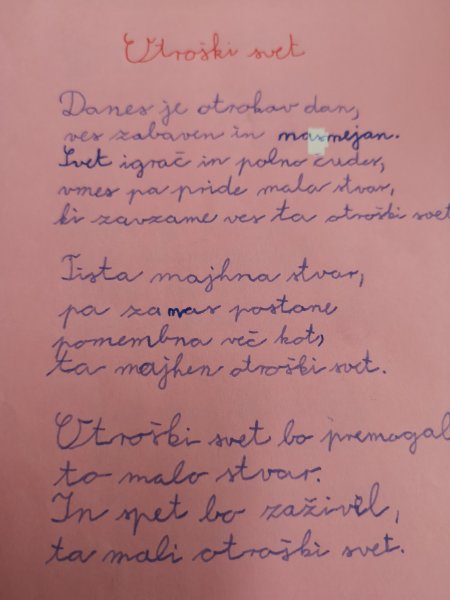 Otroški svet
Danes je otrokov dan,
ves zabaven in nasmejan.
Svet igrač in polno čudes,
vmes pa pride mala stvar,
ki zavzame ves ta otroški svet
Tista majhna stvar,
pa za nas postane
pomembna več kot,
ta majhen otroški svet.
Otroški svet bo premagal
to malo stvar.
In spet bo zaživel,
ta mali otroški svet.